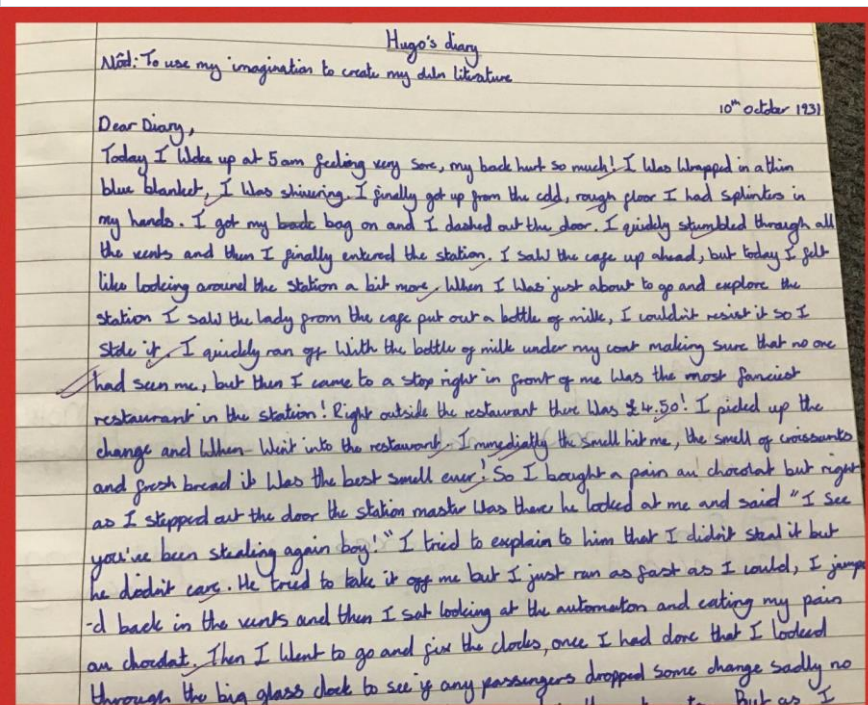 Hugo's diary
Nôd: To use my imagination to create my own literature
10th october 1931
Dear Diary,
Today I Woke up at 5am feeling very sore, my back hurt so much! I Was Wrapped in a thin
blue blanket, I Was shivering. I finally got up from the cold, rough floor I had splinters in
my hands. I got my back bag on and I dashed out the door. I quickly stumbled through all
the vents and then I finally entered the station. I saw the cafe up ahead, but today I felt
like looking around the station a bit more. When I Was just about to go and explore the
station I saw the lady from the cafe put out a bottle of milk, I couldn't resist it so I
stole it. I quickly ran off With the bottle of milk under my coat making sure that no one
had seen me, but then I came to a stop right in front of me Was the most fanciest
restaurant in the station! Right outside the restaurant there Was £4.50! I picked up the
change and When Went into the restaurant. Immediatly the smell hit me, the smell of croissants
and fresh bread it Was the best smell ever! So I bought a pain au chocolat but right
as I stepped out the door the station master Was there he looked at me and said "I see
you've been stealing again boy!" I tried to explain to him that I didn't steal it but
he didn't care. He tried to take it off me but I just ran as fast as I could, I jumpe
-d back in the vents and then I sat looking at the automaton and eating my pain
au chocolat. Then I Went to go and fix the clocks, once I had done that I looked
through the big glass clock to see if any passengers dropped some change sadly no
But as I